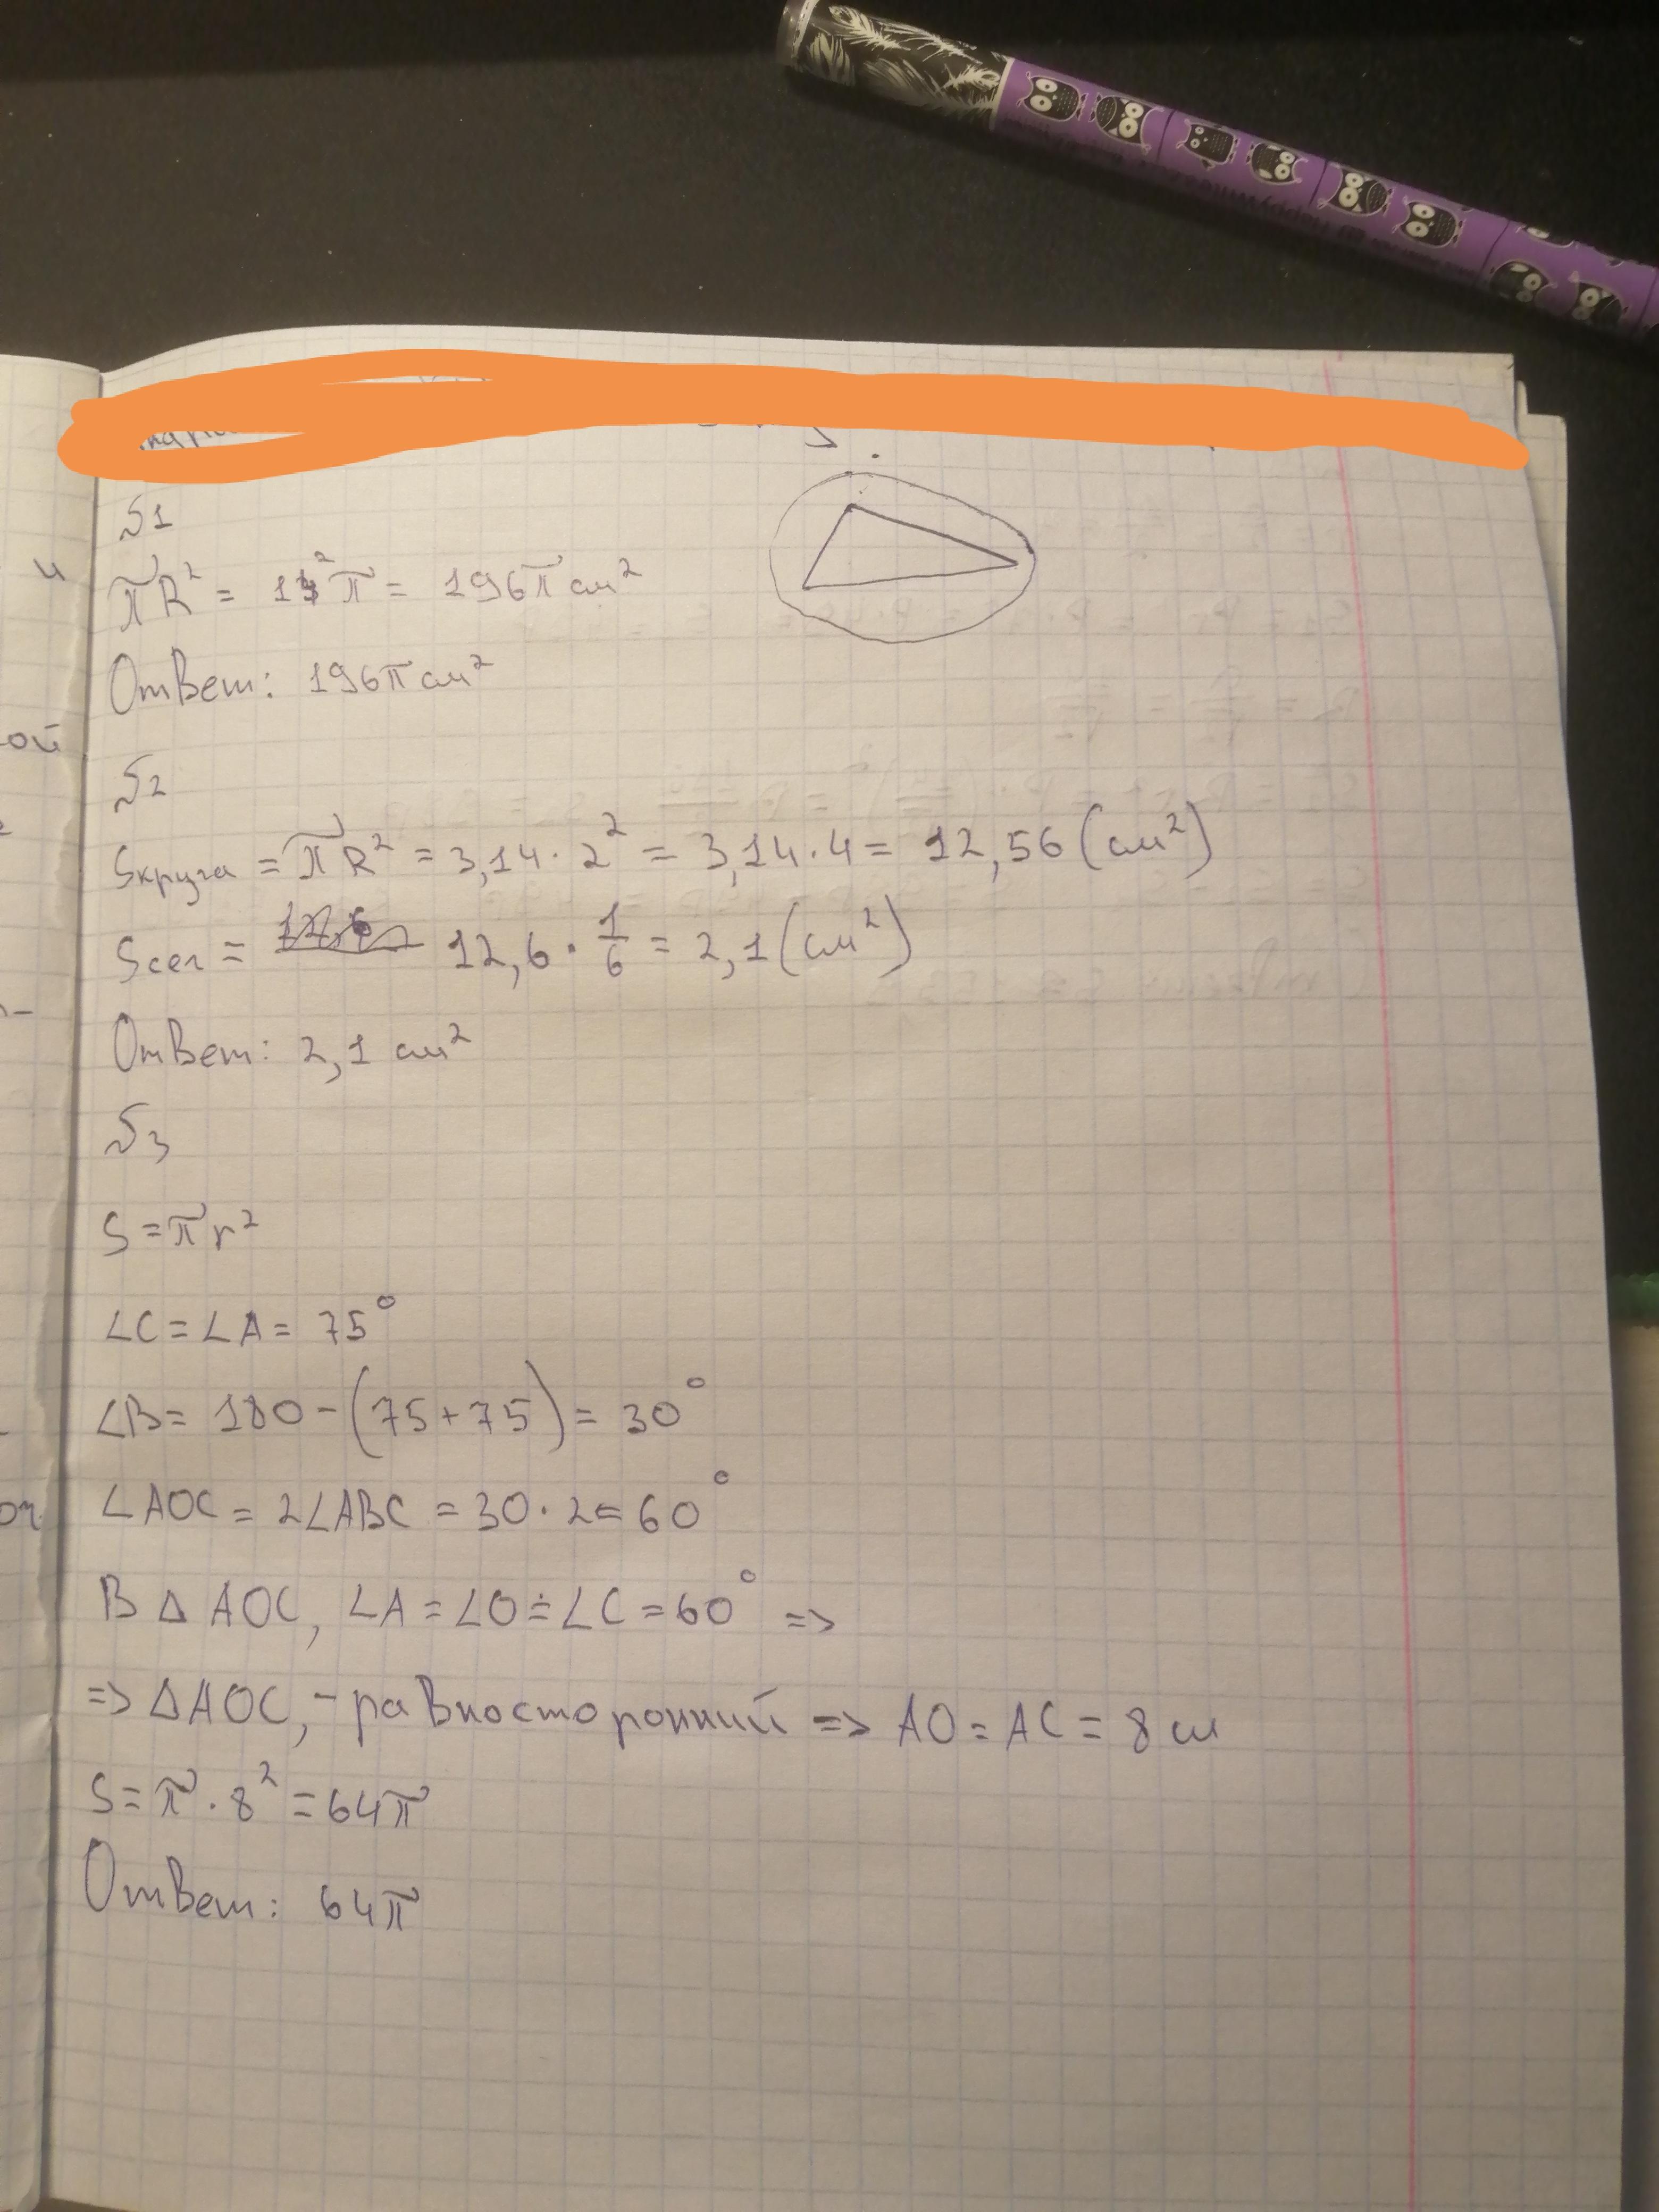 №1
πR² = 14²π = 196π см²
Ответ: 196π см²
№2
Sкруга = πR² = 3,14 · 2² = 3,14 · 4 = 12,56 (см²)
Sсег = 12,6 · 1/6 = 2,1 (см²)
Ответ: 2,1 см²
№3
S = πr²
∠C = ∠A = 75°
∠B = 180 - (75 + 75) = 30°
∠AOC = 2∠ABC = 30 · 2 = 60°
В △ AOC, ∠A = ∠O = ∠C = 60° =>
=> △AOC, - равносторонний => AO = AC = 8 см
S = π · 8² = 64π
Ответ: 64π